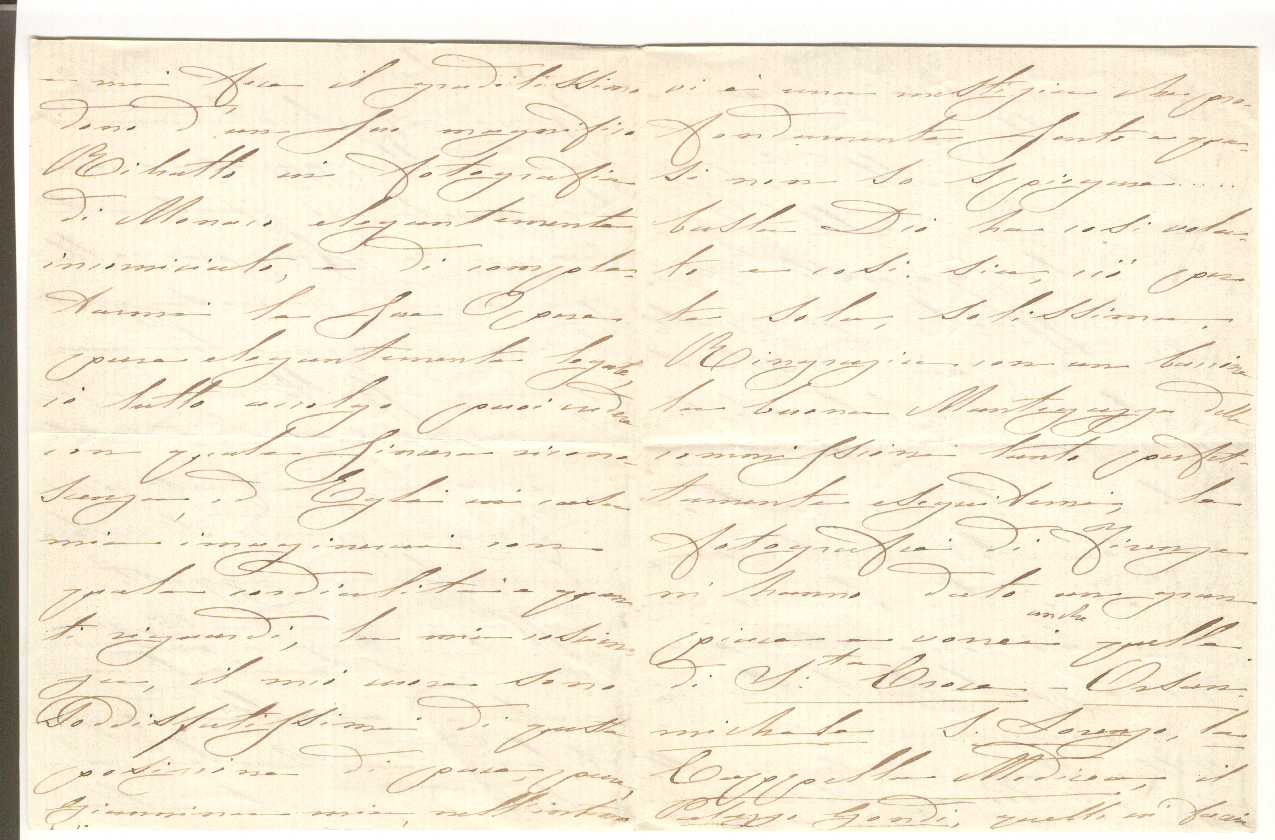 e mi fece il graditissimo
dono d'un suo magnifico
Ritratto in fotografia
di Monaco elegantemente
incorniciato, e di comple-
tarmi la sua Opera
pure elegantemente legata,
io tutto accolgo puoi vedere
con quale sincera ricono-
scenza, ed Egli in casa
mia imaginerai con
quale cordialità e quan
ti riguardi, la mia coscien
za, il mio cuore sono
soddisfatissimi di questa
posizione di pace, pure,
Giannina mia, nell'intimo
vi è una mestizia che pro-
fondamente sento e qua-
si non so spiegare.....
basta Dio ha così volu-
to e così sia, ciò per
te sola, solissima.
Ringrazia con un bacione
la buona Mantegazza delle
commissioni tanto perfet-
tamente eseguitemi, le
fotografie di Firenze
mi hanno dato un gran
piacere e vorrei anche quelle
di S.ta Croce - Orsan-
michele S. Lorenzo, la
Cappella Medicea, il
Palazzo Gondi, quello in faccia